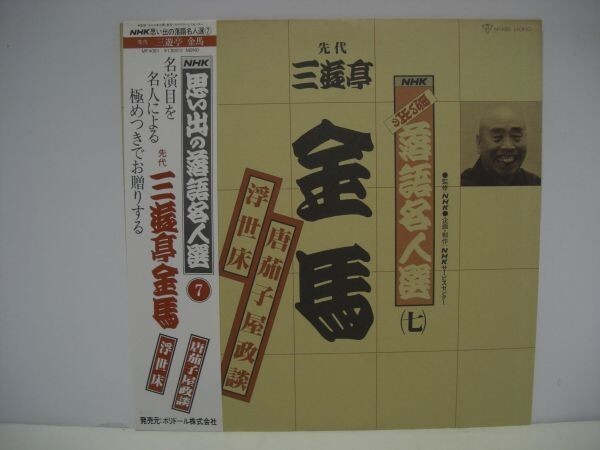 NHK思い出の落語名人選⑦
先代 三遊亭 金馬
MONO
NHK
思い出の落語名人選
7
名演目を
名人による
極めつきでお贈りする
先代
三遊亭金馬
唐茄子屋政談
浮世床
発売元:ポリドール株式会社
先代
三遊亭
金馬
NHK
思い出の
落語名人選
(七)
●監修・NHK●企画・制作・NHKサービスセンター
唐茄子屋政談
浮世床
MONO